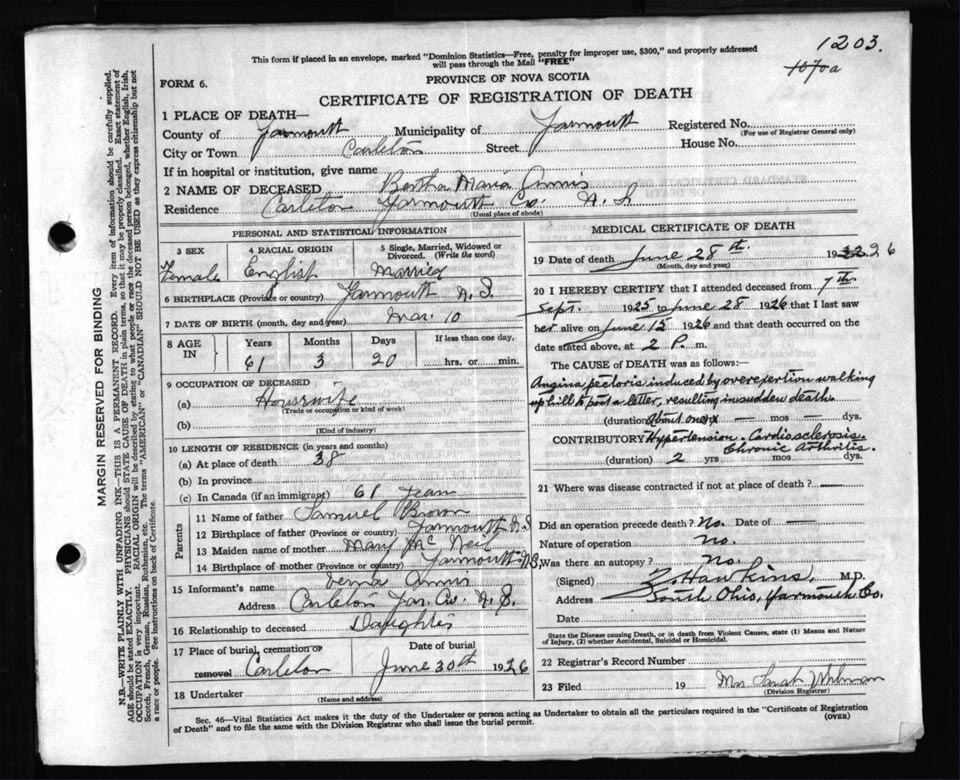 1203.
1070a
This form if placed in an envelope, marked "Dominion Statistics—Free, penalty for improper use, $300," and properly addressed
will pass through the Mail "FREE"
PROVINCE OF NOVA SCOTIA
FORM 6.
CERTIFICATE OF REGISTRATION OF DEATH
1 PLACE OF DEATH—
County of Yarmouth Municipality of Yarmouth Registered No.
(For use of Registrar General only)
City or Town Carleton Street House No.
If in hospital or institution, give name
2 NAME OF DECEASED Bertha Maria Annis
Residence Carleton Yarmouth Co. N. S
(Usual place of abode)
PERSONAL AND STATISTICAL INFORMATION
3 SEX 4 RACIAL ORIGIN 5 Single, Married, Widowed or
Divorced. (Write the word)
Female English Married
6 BIRTHPLACE (Province or country) Yarmouth N.S.
7 DATE OF BIRTH (month, day and year) Mar. 10
8 AGE IN Years Months Days If less than one day,
61 3 20 hrs. or min.
9 OCCUPATION OF DECEASED
(a) Housewife
(Trade or occupation or kind of work)
(b)
(Kind of industry)
10 LENGTH OF RESIDENCE (in years and months)
(a) At place of death 38
(b) In province
(c) In Canada (if an immigrant) 61 years
Parents
11 Name of father Samuel Brown
12 Birthplace of father (Province or country) Yarmouth N.S
13 Maiden name of mother Mary McNeil
14 Birthplace of mother (Province or country) Yarmouth N.S.
15 Informant's name Verna Annis
Address Carleton Yar. Co. N. S.
16 Relationship to deceased Daughter
17 Place of burial, cremation or Date of burial
removal Carleton June 30th 1926
18 Undertaker
(Name and address)
MEDICAL CERTIFICATE OF DEATH
19 Date of death June 28th. 1926
(Month, day and year)
20 I HEREBY CERTIFY that I attended deceased from 7th
Sept. 1925 to June 28 1926 that I last saw
her alive on June 15 1926 and that death occurred on the
date stated above, at 2 P. m.
The CAUSE OF DEATH was as follows:—
Angina pectoris induced by overexertion walking
up hill to post a letter, resulting in sudden death.
(duration) About one mos dys.
CONTRIBUTORY Hypertension. Cardiosclerosis.
Chronic Arthritis.
(duration) 2 yrs mos dys.
21 Where was disease contracted if not at place of death?
Did an operation precede death? No. Date of
Nature of operation no.
Was there an autopsy? No.
(Signed) Hawkins, M.D.
Address South Ohio, Yarmouth Co.
Date
State the Disease causing Death, or in death from Violent Causes, state (1) Means and Nature
of Injury, (2) whether Accidental, Suicidal or Homicidal.
22 Registrar's Record Number
23 Filed 19 Mrs Sarah Whitman
(Division Registrar)
Sec. 46—Vital Statistics Act makes it the duty of the Undertaker or person acting as Undertaker to obtain all the particulars required in the "Certificate of Registration
of Death" and to file the same with the Division Registrar who shall issue the burial permit.
(OVER)
MARGIN RESERVED FOR BINDING
N.B.—WRITE PLAINLY WITH UNFADING INK—THIS IS A PERMANENT RECORD. Every item of information should be carefully supplied.
AGE should be stated EXACTLY. PHYSICIANS should STATE CAUSE OF DEATH in plain terms, so that it may be properly classified. Exact statement of
OCCUPATION is very important. RACIAL ORIGIN will be described by stating to what people or race the deceased person belonged, whether English, Irish,
Scotch, French, German, Russian, Ruthenian, etc. The terms "AMERICAN" or "CANADIAN" SHOULD NOT BE USED as they express citizenship but not
a race or people. See instructions on back of Certificate.